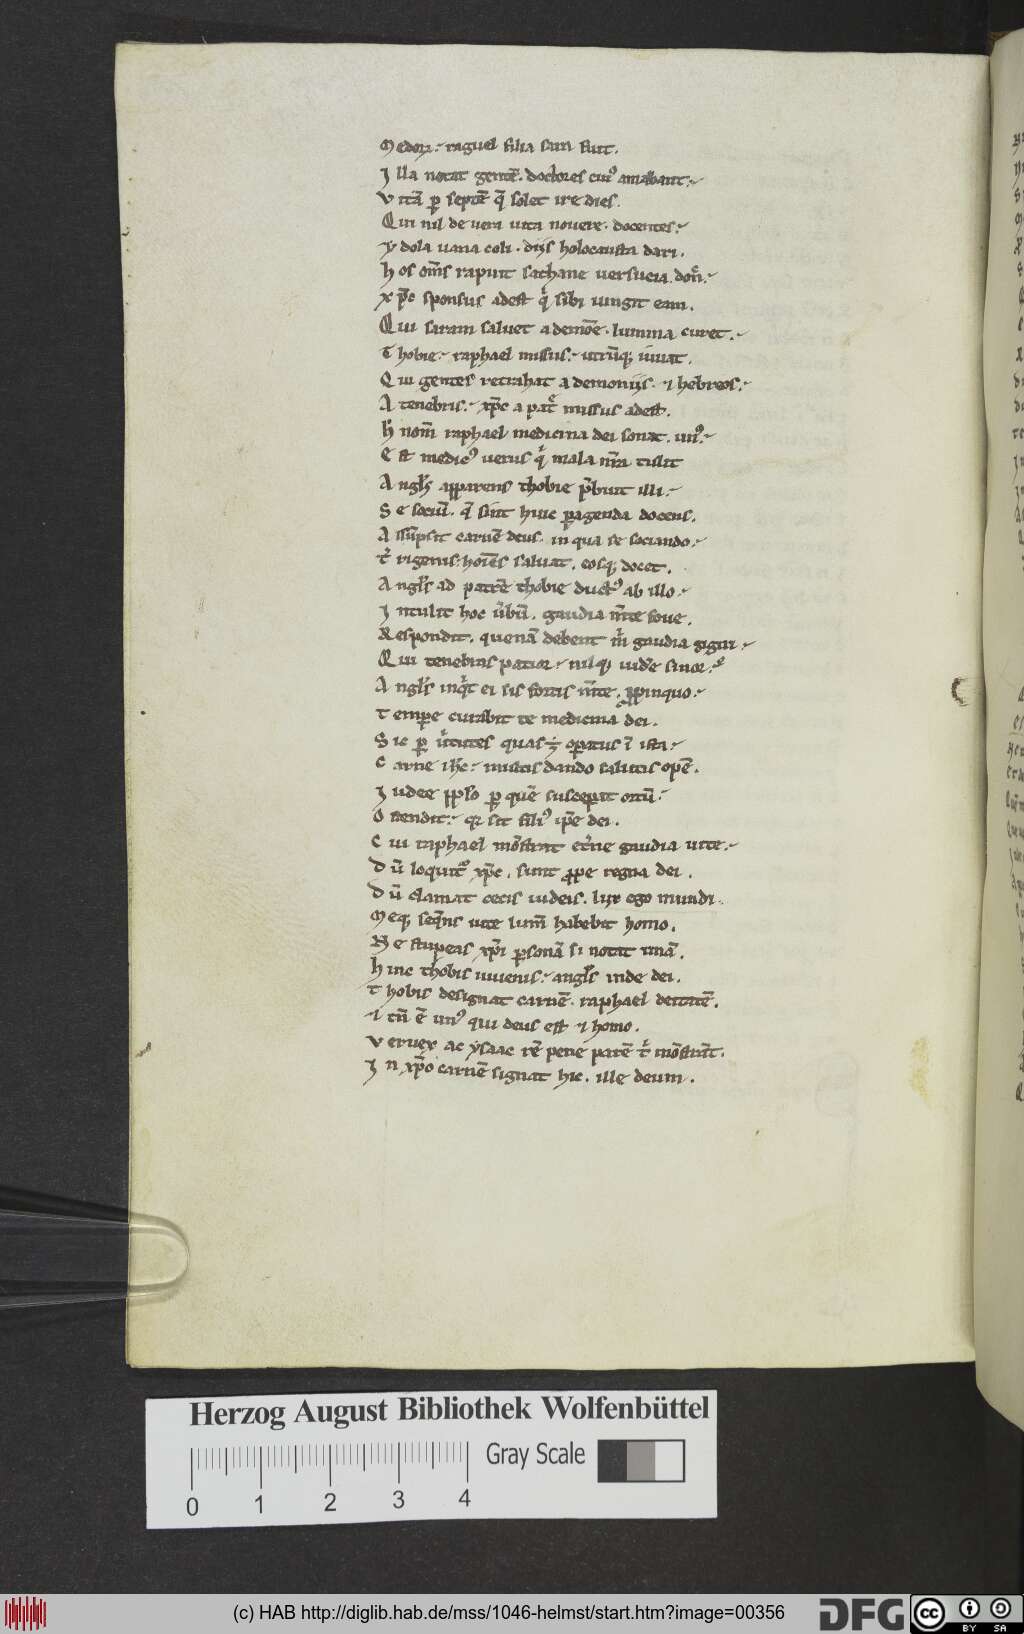 Medoꝝ. raguel filia sara fuit.
Illa notat gentē. doctores cuiꝰ amabant.
Vitā ꝑ septē q̄ solet ire dies.
Qui nil de uera uita nouere. docentes.
Ydola uana coli. dijs holocausta dari.
Hos om̄s rapuit sathane uersucia. don̄.
Xp̄c sponsus adest q̇ sibi iungit eam.
Qui saram saluet a demōe. lumina curet.
Thobie. raphael missus. utrūq; iuuat.
Qui gentes retrahat a demonijs. ⁊ hebreos.
A tenebris. xp̄c a patͬ missus adest.
H̄ nom̄ raphael medicina dei sonat. unꝰ.
Est medicꝰ uerus q̇ mala nr̄a tulit
Angl̄s apparens thobie p̄buit illi.
Se sociū. q̄ sint huic ꝑagenda docens.
Assūpsit carnē deus. in qua se sociando.
Tͥrigenis hoīes saluat. eosq; docet.
Angl̄s ad patrē thobie ductꝰ ab illo.
Intulit hoc ūbū. gaudia m̄te foue.
Respondit. quenā debent ṁ gaudia gigni.
Qui tenebras patior. nilq; uidē sinor.
Angl̄s inq̇t ei sis fortis m̄te. ꝓpinquo.
Tempore curabit te medicina dei.
Sic ꝑ ūtutes quas ÷ oꝑatus ī ista.
Carne ih̄c. multis dando salutis opē.
Iudee pp̄lo ꝑ quē susceꝑat ortū.
Ostendit. qͣ sit filiꝰ ip̄e dei.
Cui raphael mōstrat et̄ne gaudia uite.
Dū loquitᷣ xp̄c. sunt ꝓpe regna dei.
Dū clamat cecis iudeis. lux ego mundi.
Meq; seq̄ns uite lum̄ habebit homo.
Ne stupeas xp̄i ꝑsonā si notat unā.
Hinc thobis iuuenis. angl̄s inde dei.
Thobis designat carnē. raphael deitatē.
⁊ tn̄ ē unꝰ qui deus est ⁊ homo.
Veruex ac ysaac rē pene parē tͥ mōstrāt.
In xp̄o carnē signat hic. ille deum.
Herzog August Bibliothek Wolfenbüttel
Gray Scale
0 1 2 3 4
(c) HAB http://diglib.hab.de/mss/1046-helmst/start.htm?image=00356
DFG
cc BY SA